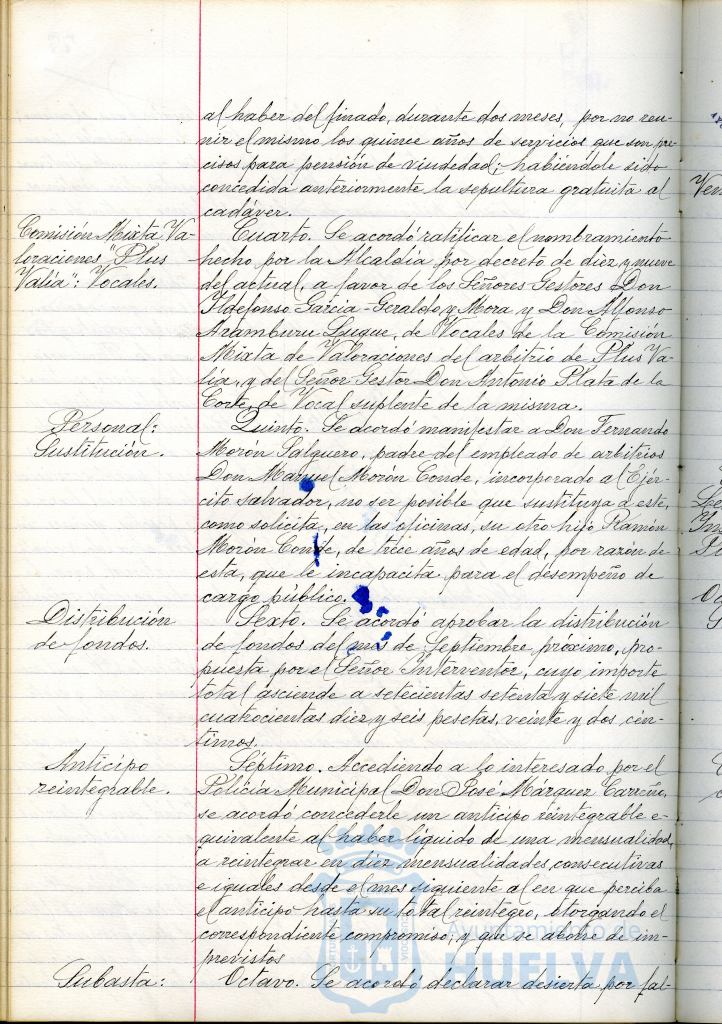 al haber del finado, durante dos meses, por no reu-
nir el mismo los quince años de servicios que son pre-
cisos para pensión de viudedad; habiéndole sido
concedida anteriormente la sepultura gratuita al
cadáver.
Comisión Mixta Va-
loraciones "Plus
Valía": Vocales.
Cuarto. Se acordó ratificar el nombramiento
hecho por la Alcaldía por decreto de diez y nueve
del actual, a favor de los Señores Gestores Don
Ildefonso García-Geraldo y Mora y Don Alfonso
Aramburu Luque, de Vocales de la Comisión
Mixta de Valoraciones del arbitrio de Plus Va-
lía, y del Señor Gestor Don Antonio Plata de la
Corte, de Vocal suplente de la misma.
Personal:
Sustitución.
Quinto. Se acordó manifestar a Don Fernando
Morón Salguero, padre del empleado de arbitrios
Don Manuel Morón Conde, incorporado al Ejér-
cito salvador, no ser posible que sustituya a este,
como solicita, en las oficinas, su otro hijo Ramón
Morón Conde, de trece años de edad, por razón de
esta, que le incapacita para el desempeño de
cargo público.
Distribución
de fondos.
Sexto. Se acordó aprobar la distribución
de fondos del mes de Septiembre próximo, pro-
puesta por el Señor Interventor, cuyo importe
total asciende a setecientas setenta y siete mil
cuatrocientas diez y seis pesetas, veinte y dos cén-
timos.
Anticipo
reintegrable.
Séptimo. Accediendo a lo interesado por el
Policía Municipal Don José Márquez Carreño,
se acordó concederle un anticipo reintegrable e-
quivalente al haber líquido de una mensualidad,
a reintegrar en diez mensualidades consecutivas
e iguales desde el mes siguiente al en que perciba
el anticipo hasta su total reintegro, otorgando el
correspondiente compromiso; y que se abone de im-
previstos
Subasta:
Octavo. Se acordó declarar desierta por fal-
Ayuntamiento de
HUELVA